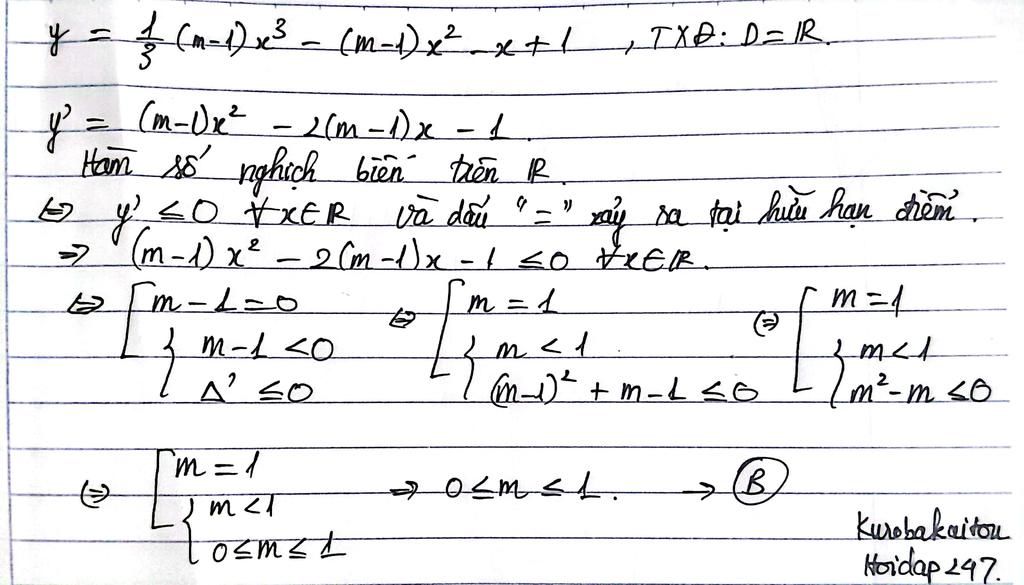 y = 1/3 (m-1)x³ - (m-1)x² - x + 1 , TXĐ: D = ℝ.
y' = (m-1)x² - 2(m-1)x - 1.
Hàm số nghịch biến trên ℝ.
⇔ y' ≤ 0 ∀x∈ℝ và dấu "=" xảy ra tại hữu hạn điểm.
⇒ (m-1)x² - 2(m-1)x - 1 ≤ 0 ∀x∈ℝ.
⇔ [ m - 1 = 0 ⇔ [ m = 1 ⇔ [ m = 1
{ m - 1 < 0 { m < 1 { m < 1
Δ' ≤ 0 (m-1)² + m - 1 ≤ 0 m² - m ≤ 0
⇔ [ m = 1 ⇒ 0 ≤ m ≤ 1. → B
{ m < 1
0 ≤ m ≤ 1
Kurobakaitou
Hoidap247.